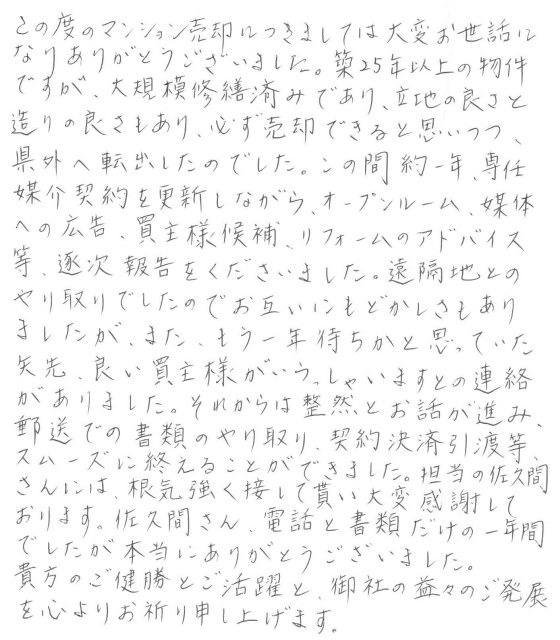 この度のマンション売却につきましては大変お世話に
なりありがとうございました。築25年以上の物件
ですが、大規模修繕済みであり、立地の良さと
造りの良さもあり、必ず売却できると思いつつ、
県外へ転出したのでした。この間約一年、専任
媒介契約を更新しながら、オープンルーム、媒体
への広告、買主様候補、リフォームのアドバイス
等、逐次報告をくださいました。遠隔地との
やり取りでしたのでお互いにもどかしさもあり
ましたが、また、もう一年待ちかと思っていた
矢先、良い買主様がいらっしゃいますとの連絡
がありました。それからは整然とお話が進み、
郵送での書類のやり取り、契約決済引渡等、
スムーズに終えることができました。担当の佐久間
さんには、根気強く接して貰い大変感謝して
おります。佐久間さん、電話と書類だけの一年間
でしたが本当にありがとうございました。
貴方のご健勝とご活躍と、御社の益々のご発展
を心よりお祈り申し上げます。